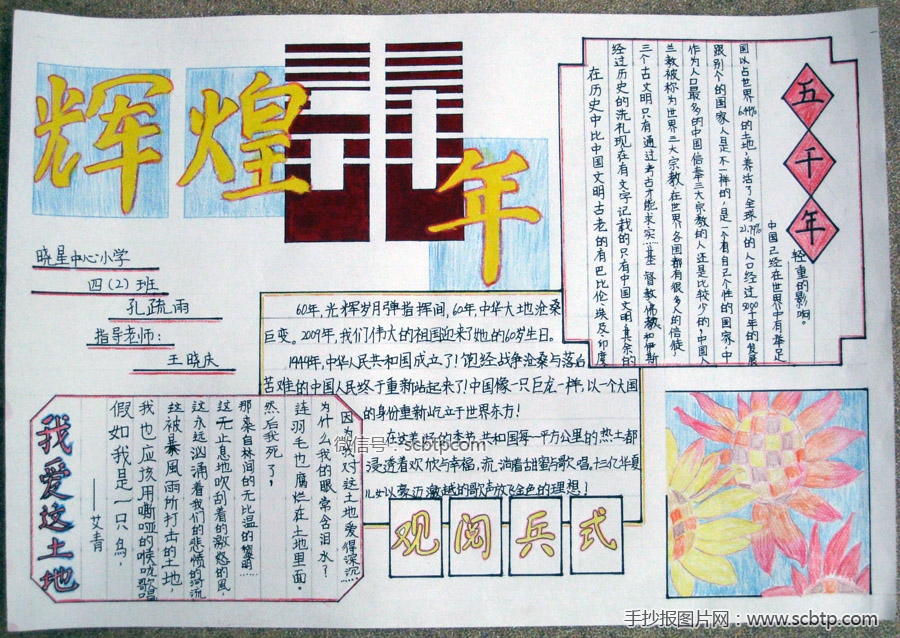 辉煌60年
晓星中心小学
四(2)班
孔疏雨
指导老师:
王晓庆
五千年
在历史中比中国文明古老的有巴比伦、埃及、印度
经过历史的洗礼现在有文字记载的只有中国文明,其余的
三个古文明只有通过考古才能求实。基督教佛教和伊斯
兰教被称为世界三大宗教在世界各国都有很多人的信徒,
作为人口最多的中国信奉三大宗教的人还是比较少的,中国人
跟别个的国家人是不一样的,是一个有自己个性的国家,中
国以占世界6.44%的土地,养活了全球21.79%的人口经过5000千年的发展
中国已经在世界中有举足
轻重的影响。
60年,光辉岁月弹指挥间,60年,中华大地沧桑
巨变。2009年,我们伟大的祖国迎来了她的60岁生日。
1949年,中华人民共和国成立了!饱经战争沧桑与落后
苦难的中国人民终于重新站起来了!中国像一只巨龙一样,以一个大国
的身份重新屹立于世界东方!
在这秋的季节,共和国每一平方公里的热土都
浸透着欢欣与幸福,流淌着甜蜜与歌唱,十三亿华夏
儿女以豪迈激越的歌声放飞金色的理想!
观阅兵式
我爱这土地
——艾青
假如我是一只鸟,
我也应该用嘶哑的喉咙歌唱
这被暴风雨所打击的土地,
这永远汹涌着我们的悲愤的河流
这无止息地吹刮着的激怒的风,
那来自林间的无比温的黎明……
然后我死了,
连羽毛也腐烂在土地里面。
为什么我的眼常含泪水?
因为我对这土地爱得深沉…
微信号:scbtp.com
手抄报图片网:www.scbtp.com